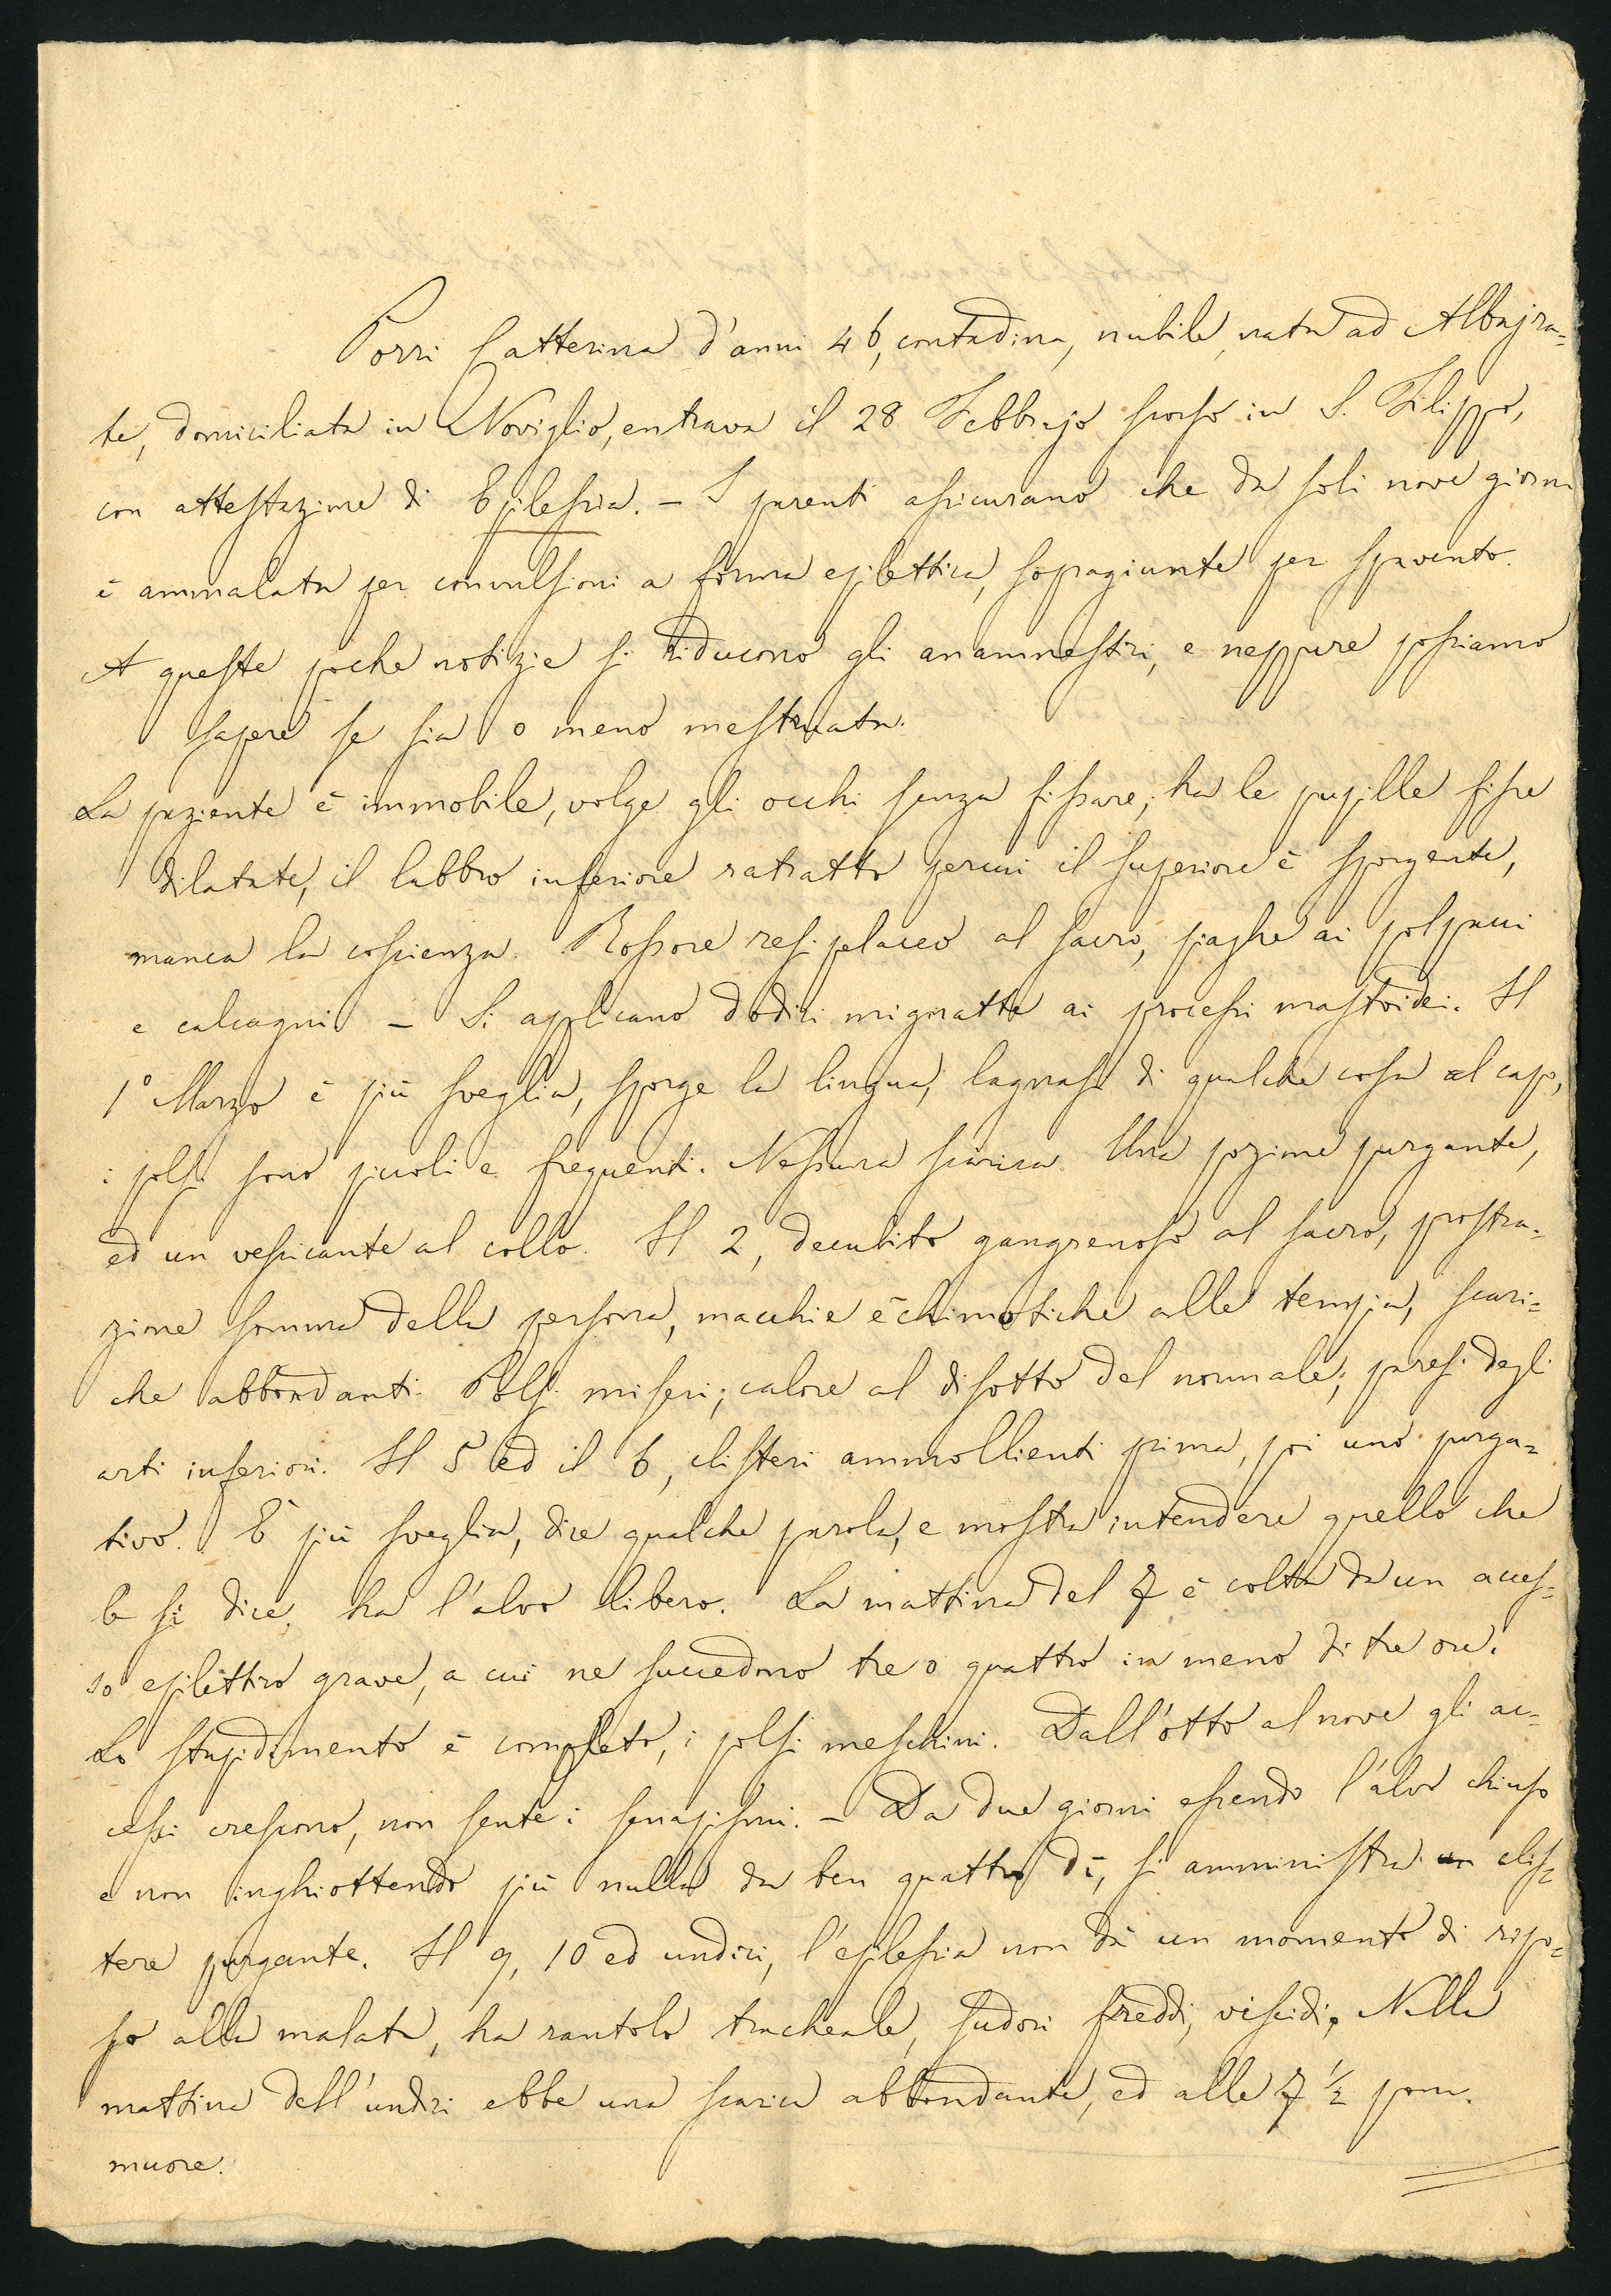 Porri Catterina d'anni 46, contadina, nubile, nata ad Albajra=
te, domiciliata in Noviglio, entrava il 28 Febbrajo scorso in S. Filippo,
con attestazione di Epilessia. - I parenti assicurano che da soli nove giorni
è ammalata per convulsioni a forma epilettica, sopragiunte per spavento.
A queste poche notizie si riducono gli anamnestici, e neppure possiamo
sapere se sia o meno mestruata.
La paziente è immobile, volge gli occhi senza fissare; ha le pupille fisse
dilatate, il labbro inferiore ratratto percui il superiore è sporgente,
manca la coscienza. Rossore resipelaceo al sacro, piaghe ai polpacci
e calcagni - Si applicano dodici mignatte ai processi mastoidei. Il
1° Marzo è più sveglia, sporge la lingua, lagnasi di qualche cosa al capo,
i polsi sono piccoli e frequenti. Nessuna scarica. Una pozione purgante,
ed un vescicante al collo. Il 2, decubito gangrenoso al sacro, prostra=
zione somma della persona, macchie echimotiche alle tempia, scari=
che abbondanti. Polsi miseri; calore al disotto del normale; paresi degli
arti inferiori. Il 5 ed il 6, clisteri ammollienti prima, poi uno purga=
tivo. È più sveglia, dice qualche parola, e mostra intendere quello che
le si dice, ha l'alvo libero. La mattina del 7 è colta da un acces=
so epilettico grave, a cui ne succedono tre o quattro in meno di tre ore.
Lo stupidimento è completo, i polsi meschini. Dall'otto al nove gli ac=
cessi crescono, non sente i senapismi. - Da due giorni essendo l'alvo chiuso
e non inghiottendo più nulla da ben quattro dì, si amministra un clis=
tere purgante. Il 9, 10 ed undici, l'epilessia non dà un momento di ripo=
so alla malata, ha rantolo tracheale, sudori freddi, viscidi. Nella
mattina dell'undici ebbe una scarica abbondante, ed alle 7 ½ pom.
muore.